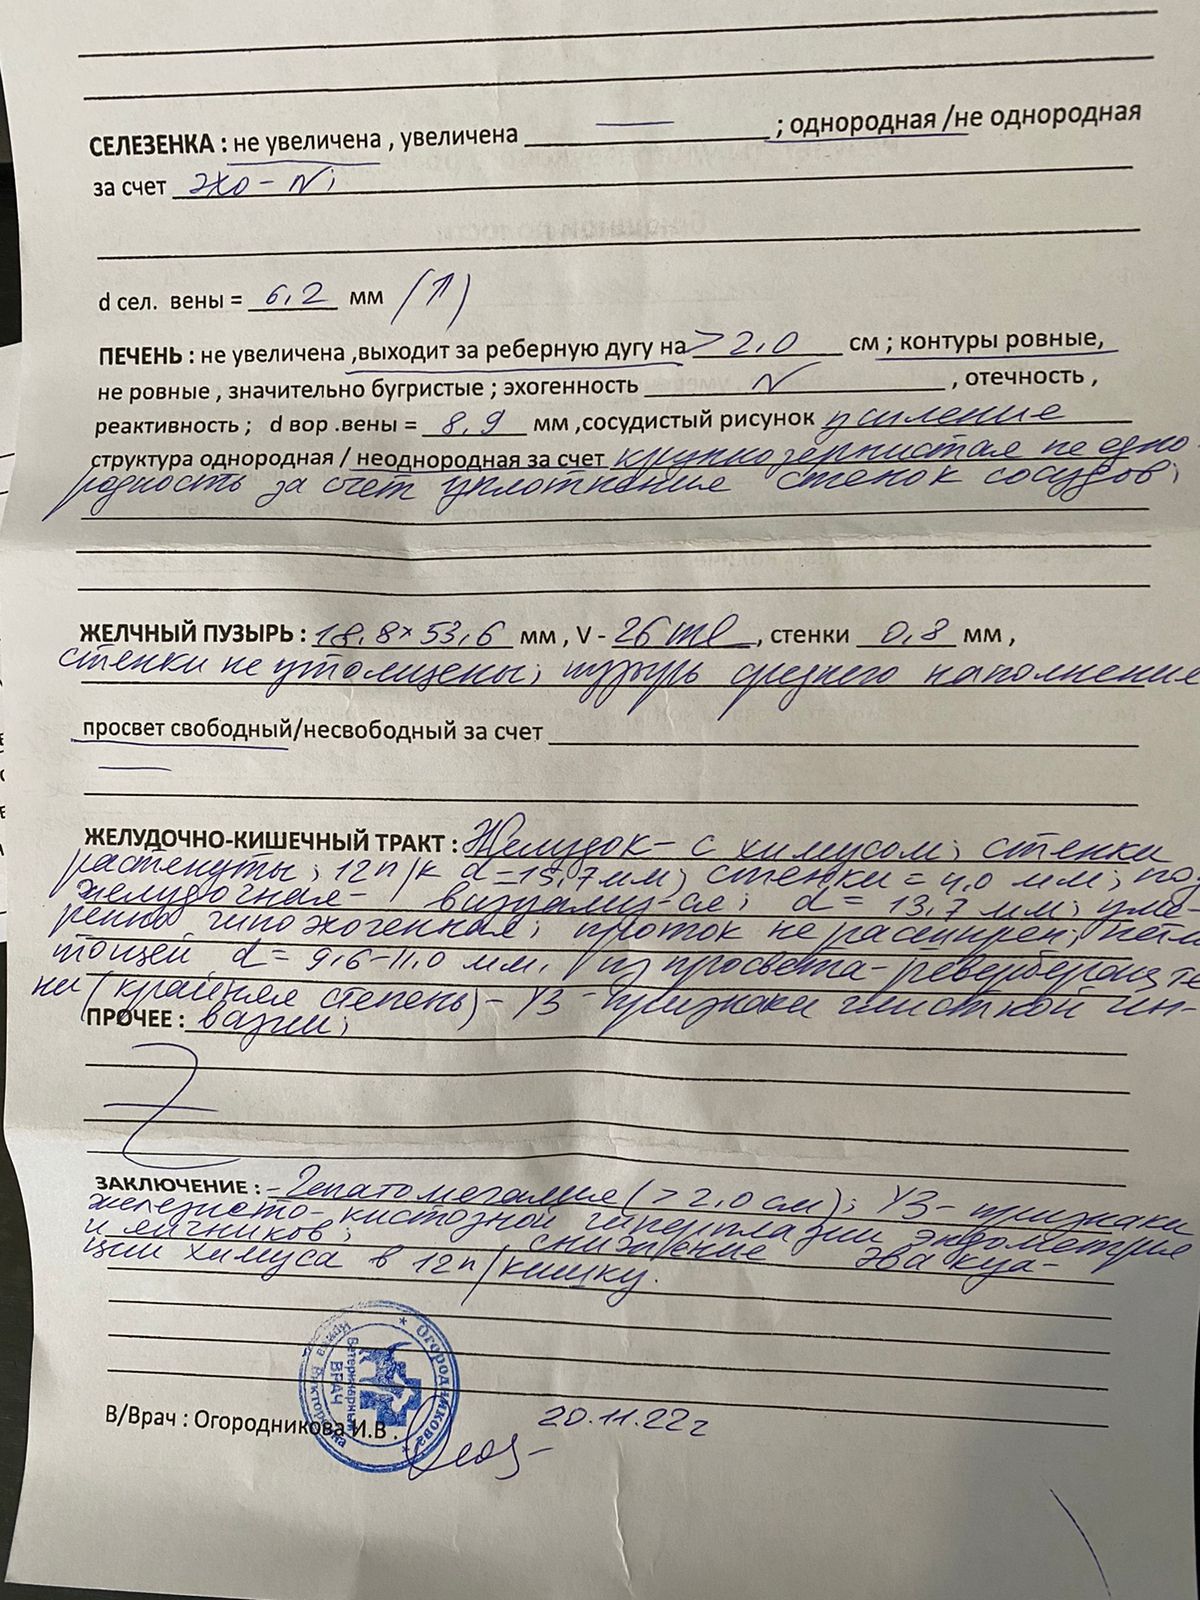 СЕЛЕЗЕНКА : не увеличена , увеличена ; однородная /не однородная
за счет эхо - N;
d сел. вены = 6,2 мм (↑)
ПЕЧЕНЬ : не увеличена ,выходит за реберную дугу на >2,0 см ; контуры ровные,
не ровные , значительно бугристые ; эхогенность N , отечность ,
реактивность ; d вор .вены = 8,9 мм ,сосудистый рисунок усиление
структура однородная / неоднородная за счет крупнозернистая не одно-
родность за счет уплотнение стенок сосудов;
ЖЕЛЧНЫЙ ПУЗЫРЬ : 18,8×53,6 мм , V - 26 ml , стенки 0,8 мм ,
стенки не утолщены; пузырь среднего наполнения
просвет свободный/несвободный за счет
ЖЕЛУДОЧНО-КИШЕЧНЫЙ ТРАКТ : Желудок - с химусом; стенки
растянуты; 12п/к d=15,7мм; стенки = 4,0 мм; под
желудочная - визуализ-ся; d = 13,7 мм; уме-
ренно гипоэхогенная; проток не расширен; петли
тощей d = 9,6-11,0 мм. из просвета - реверберац те
ни (крайняя степень) - УЗ - признаки глистной ин-
ПРОЧЕЕ : вазии;
ЗАКЛЮЧЕНИЕ : - Гепатомегалия (>2,0 см); УЗ - признаки
железисто-кистозной гиперплазии эндометрия
и яичников; снижение эвакуа-
ции химуса в 12п/кишку.
Огородникова
Ирина Викторовна
Ветеринарный
ВРАЧ
В/Врач : Огородникова И.В .
20.11.22г